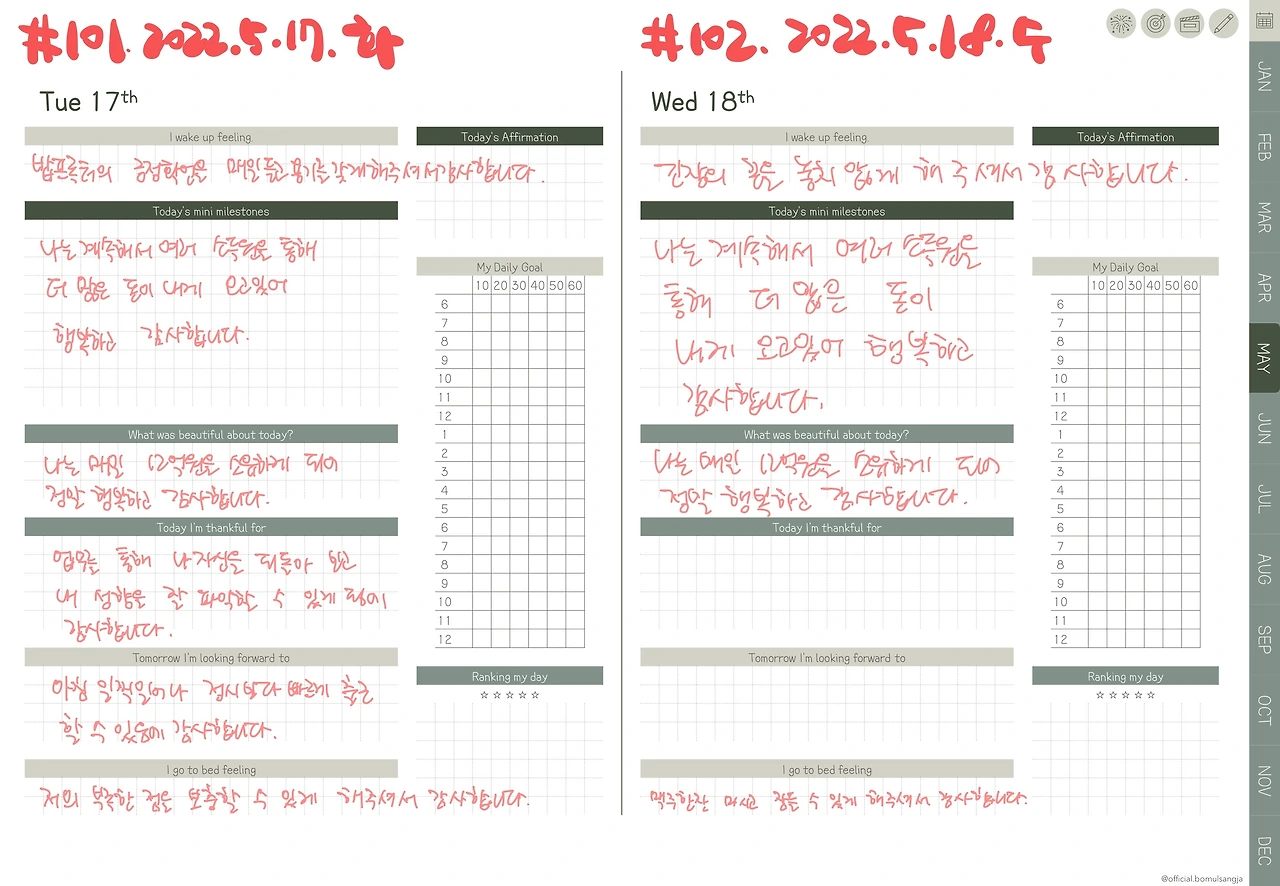 #101. 2022.5.17. 화
Tue 17th
I wake up feeling.
밥프록터의 긍정확언을 매일 듣고 용기를 갖게해주셔서감사합니다.
Today's Affirmation
Today's mini milestones
나는 계속해서 여러 소득원을 통해
더 많은 돈이 내게 오고있어
행복하고 감사합니다.
My Daily Goal
10 20 30 40 50 60
6
7
8
9
10
11
12
1
2
3
4
5
6
7
8
9
10
11
12
What was beautiful about today?
나는 매일 12억원을 소유하게 되어
정말 행복하고 감사합니다.
Today I'm thankful for
업무를 통해 나 자신을 되돌아 보고
내 성향을 잘 파악할 수 있게 됨에
감사합니다.
Tomorrow I'm looking forward to
아침 일찍일어나 정시보다 빠르게 출근
할 수 있음에 감사합니다.
Ranking my day
☆☆☆☆☆
I go to bed feeling
저의 부족한 점은 보충할 수 있게 해주셔서 감사합니다.
#102. 2022.5.18. 수
Wed 18th
I wake up feeling.
긴장의 끈을 놓치 않게 해 주셔서 감사합니다.
Today's Affirmation
Today's mini milestones
나는 계속해서 여러 소득원을
통해 더 많은 돈이
내게 오고있어 행복하고
감사합니다.
My Daily Goal
10 20 30 40 50 60
6
7
8
9
10
11
12
1
2
3
4
5
6
7
8
9
10
11
12
What was beautiful about today?
나는 매일 12억원을 소유하게 되어
정말 행복하고 감사합니다.
Today I'm thankful for
Tomorrow I'm looking forward to
Ranking my day
☆☆☆☆☆
I go to bed feeling
맥주한잔 마시고 잠들 수 있게 해주셔서 감사합니다.
JAN
FEB
MAR
APR
MAY
JUN
JUL
AUG
SEP
OCT
NOV
DEC
@official.bomulsangja